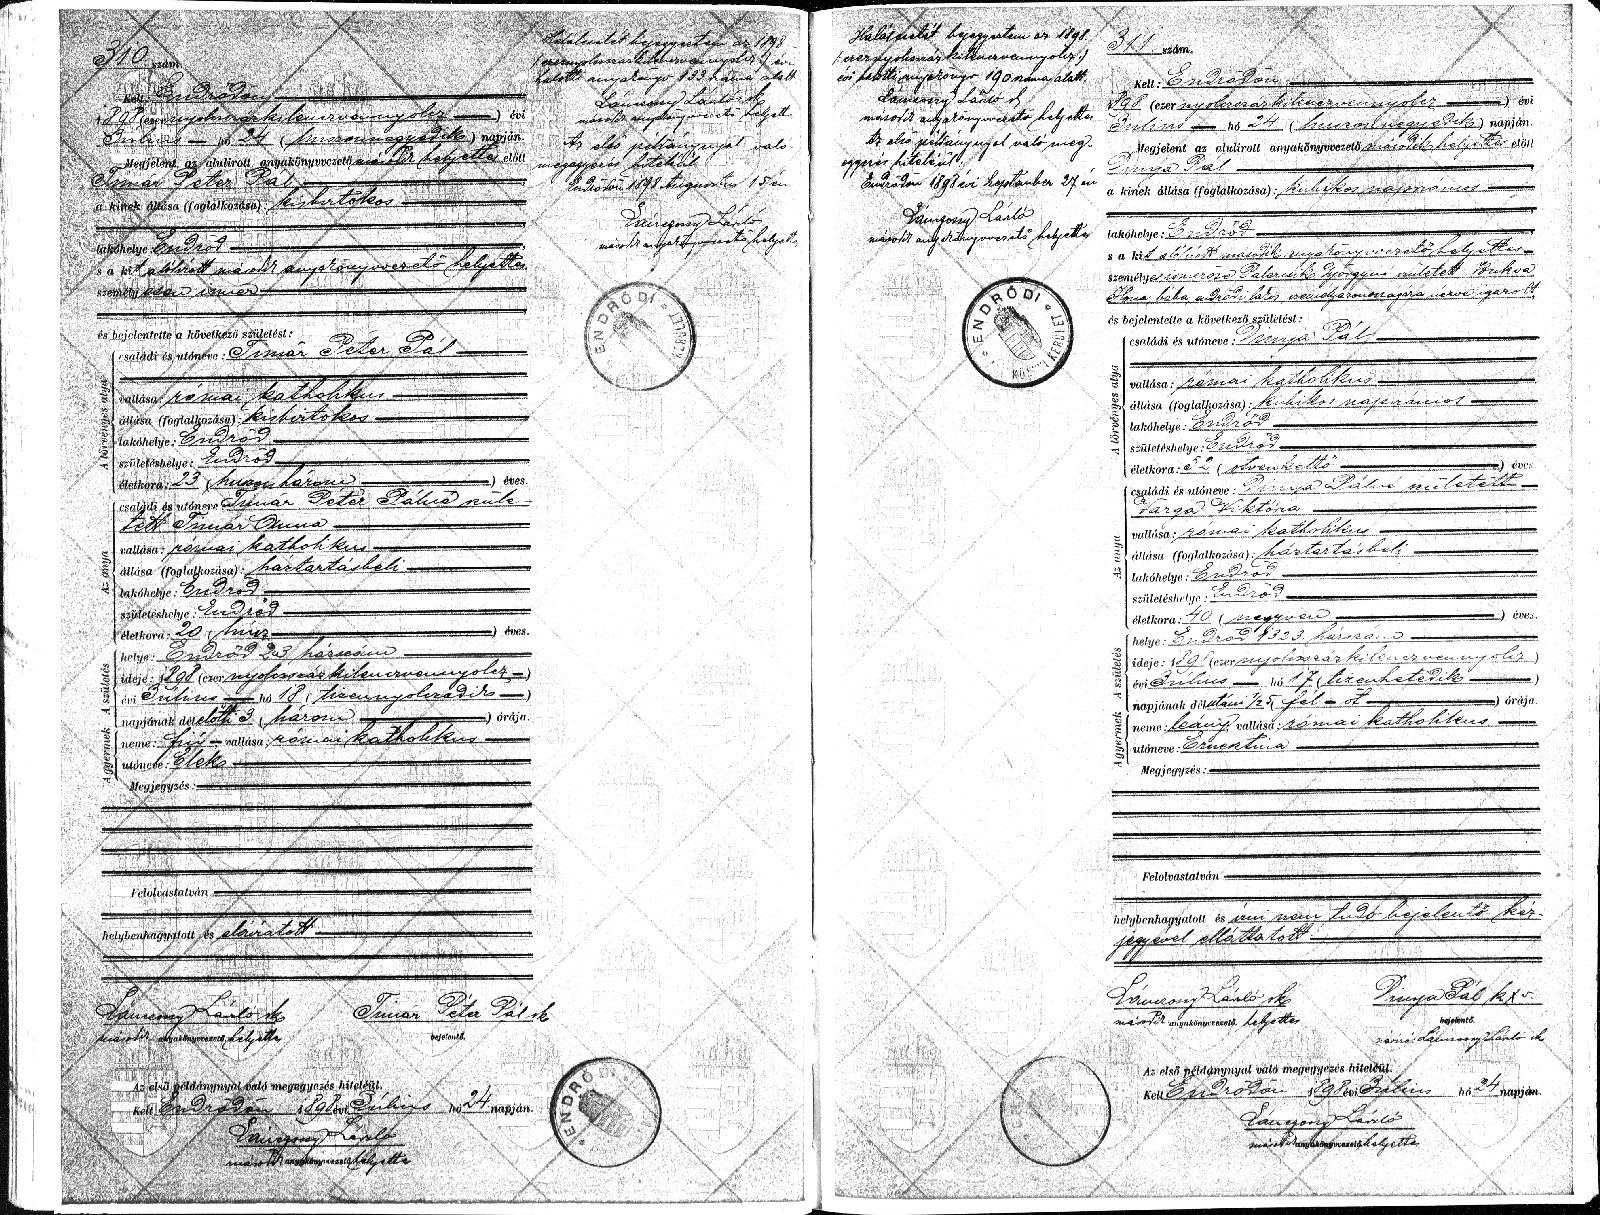 310 szám.
Kelt: Endrődön
1898 (ezer nyolcszázkilencvennyolcz) évi
Július hó 24 (huszonnegyedik) napján.
Megjelent az alulirott anyakönyvvezető helyettes előtt
Timár Péter Pál
a kinek állása (foglalkozása): kisbirtokos
lakóhelye: Endrőd
s a kit alólirott második anyakönyvvezető helyettes
személyesen ismer
és bejelentette a következő születést:
A törvényes atya
családi és utóneve: Timár Péter Pál
vallása: római katholikus
állása (foglalkozása): kisbirtokos
lakóhelye: Endrőd
születéshelye: Endrőd
életkora: 23 (huszonhárom) éves.
Az anya
családi és utóneve: Timár Péter Pálné szüle-
tett Timár Anna
vallása: római katholikus
állása (foglalkozása): háztartásbeli
lakóhelye: Endrőd
születéshelye: Endrőd
életkora: 20 (húsz) éves.
A születés
helye: Endrőd 203 házszám
ideje: 1898 (ezer nyolcszázkilencvennyolcz)
évi Július hó 18 (tizennyolczadik)
napjának délelőtti 3 (három) órája.
A gyermek
neme: fiú vallása: római katholikus
utóneve: Elek
Megjegyzés:
Felolvastatván
helybenhagyatott és aláiratott
Lánczony László sk Timár Péter Pál sk
második anyakönyvvezető helyettes bejelentő.
Az első példánynyal való megegyezés hiteléül.
Kelt Endrődön 1898 évi Július hó 24 napján.
Lánczony László
második anyakönyvvezető helyettes
ENDRŐDI
Halálesetét bejegyeztem az 1898
(ezernyolcszázkilencvennyolcz) évi
halotti anyakönyv 133 száma alatt
Lánczony László sk
második anyakönyvvezető helyett.
Az első példánynyal való
megegyezés hiteléül.
Endrődön 1898 Augusztus 15én
Lánczony László
második anyakönyvvezető helyettes
ENDRŐDI
Halálesetét bejegyeztem az 1898.
(ezernyolcszázkilencvennyolcz)
évi halotti anyakönyv 190 száma alatt.
Lánczony László sk
második anyakönyvvezető helyettes
Az első példánynyal való meg-
egyezés hiteléül.
Endrődön 1898 évi September 27 én
Lánczony László
második anyakönyvvezető helyettes
ENDRŐDI
311 szám.
Kelt: Endrődön
1898 (ezer nyolcszázkilencvennyolcz) évi
Július hó 24 (huszonnegyedik) napján.
Megjelent az alulirott anyakönyvvezető második helyettes előtt
Dinya Pál
a kinek állása (foglalkozása): kubikos napszámos
lakóhelye: Endrőd
s a kit alólirott második anyakönyvvezető helyettes
személyesen Györgyné született
Ilona bába endrődi lakos
és bejelentette a következő születést:
A törvényes atya
családi és utóneve: Dinya Pál
vallása: római katholikus
állása (foglalkozása): kubikos napszámos
lakóhelye: Endrőd
születéshelye: Endrőd
életkora: 52 (ötvenkettő) éves
Az anya
családi és utóneve: Dinya Pálné született
Varga Viktória
vallása: római katholikus
állása (foglalkozása): háztartásbeli
lakóhelye: Endrőd
születéshelye: Endrőd
életkora: 40 (negyven) éves.
A születés
helye: Endrőd 1323 házszám
ideje: 1898 (ezer nyolcszázkilencvennyolcz)
évi Július hó 17 (tizenhetedik)
napjának délutáni 1/2 5 fél öt órája.
A gyermek
neme: leány, vallása: római katholikus
utóneve: Ernesztina
Megjegyzés:
Felolvastatván
helybenhagyatott és irni nem tudó bejelentő kéz-
jegyével elláttatott
Lánczony László sk Dinya Pál kxv
második anyakönyvvezető helyettes bejelentő.
Lánczony László sk
Az első példánynyal való megegyezés hiteléül.
Kelt Endrődön 1898 évi Július hó 24 napján.
Lánczony László
második anyakönyvvezető helyettes